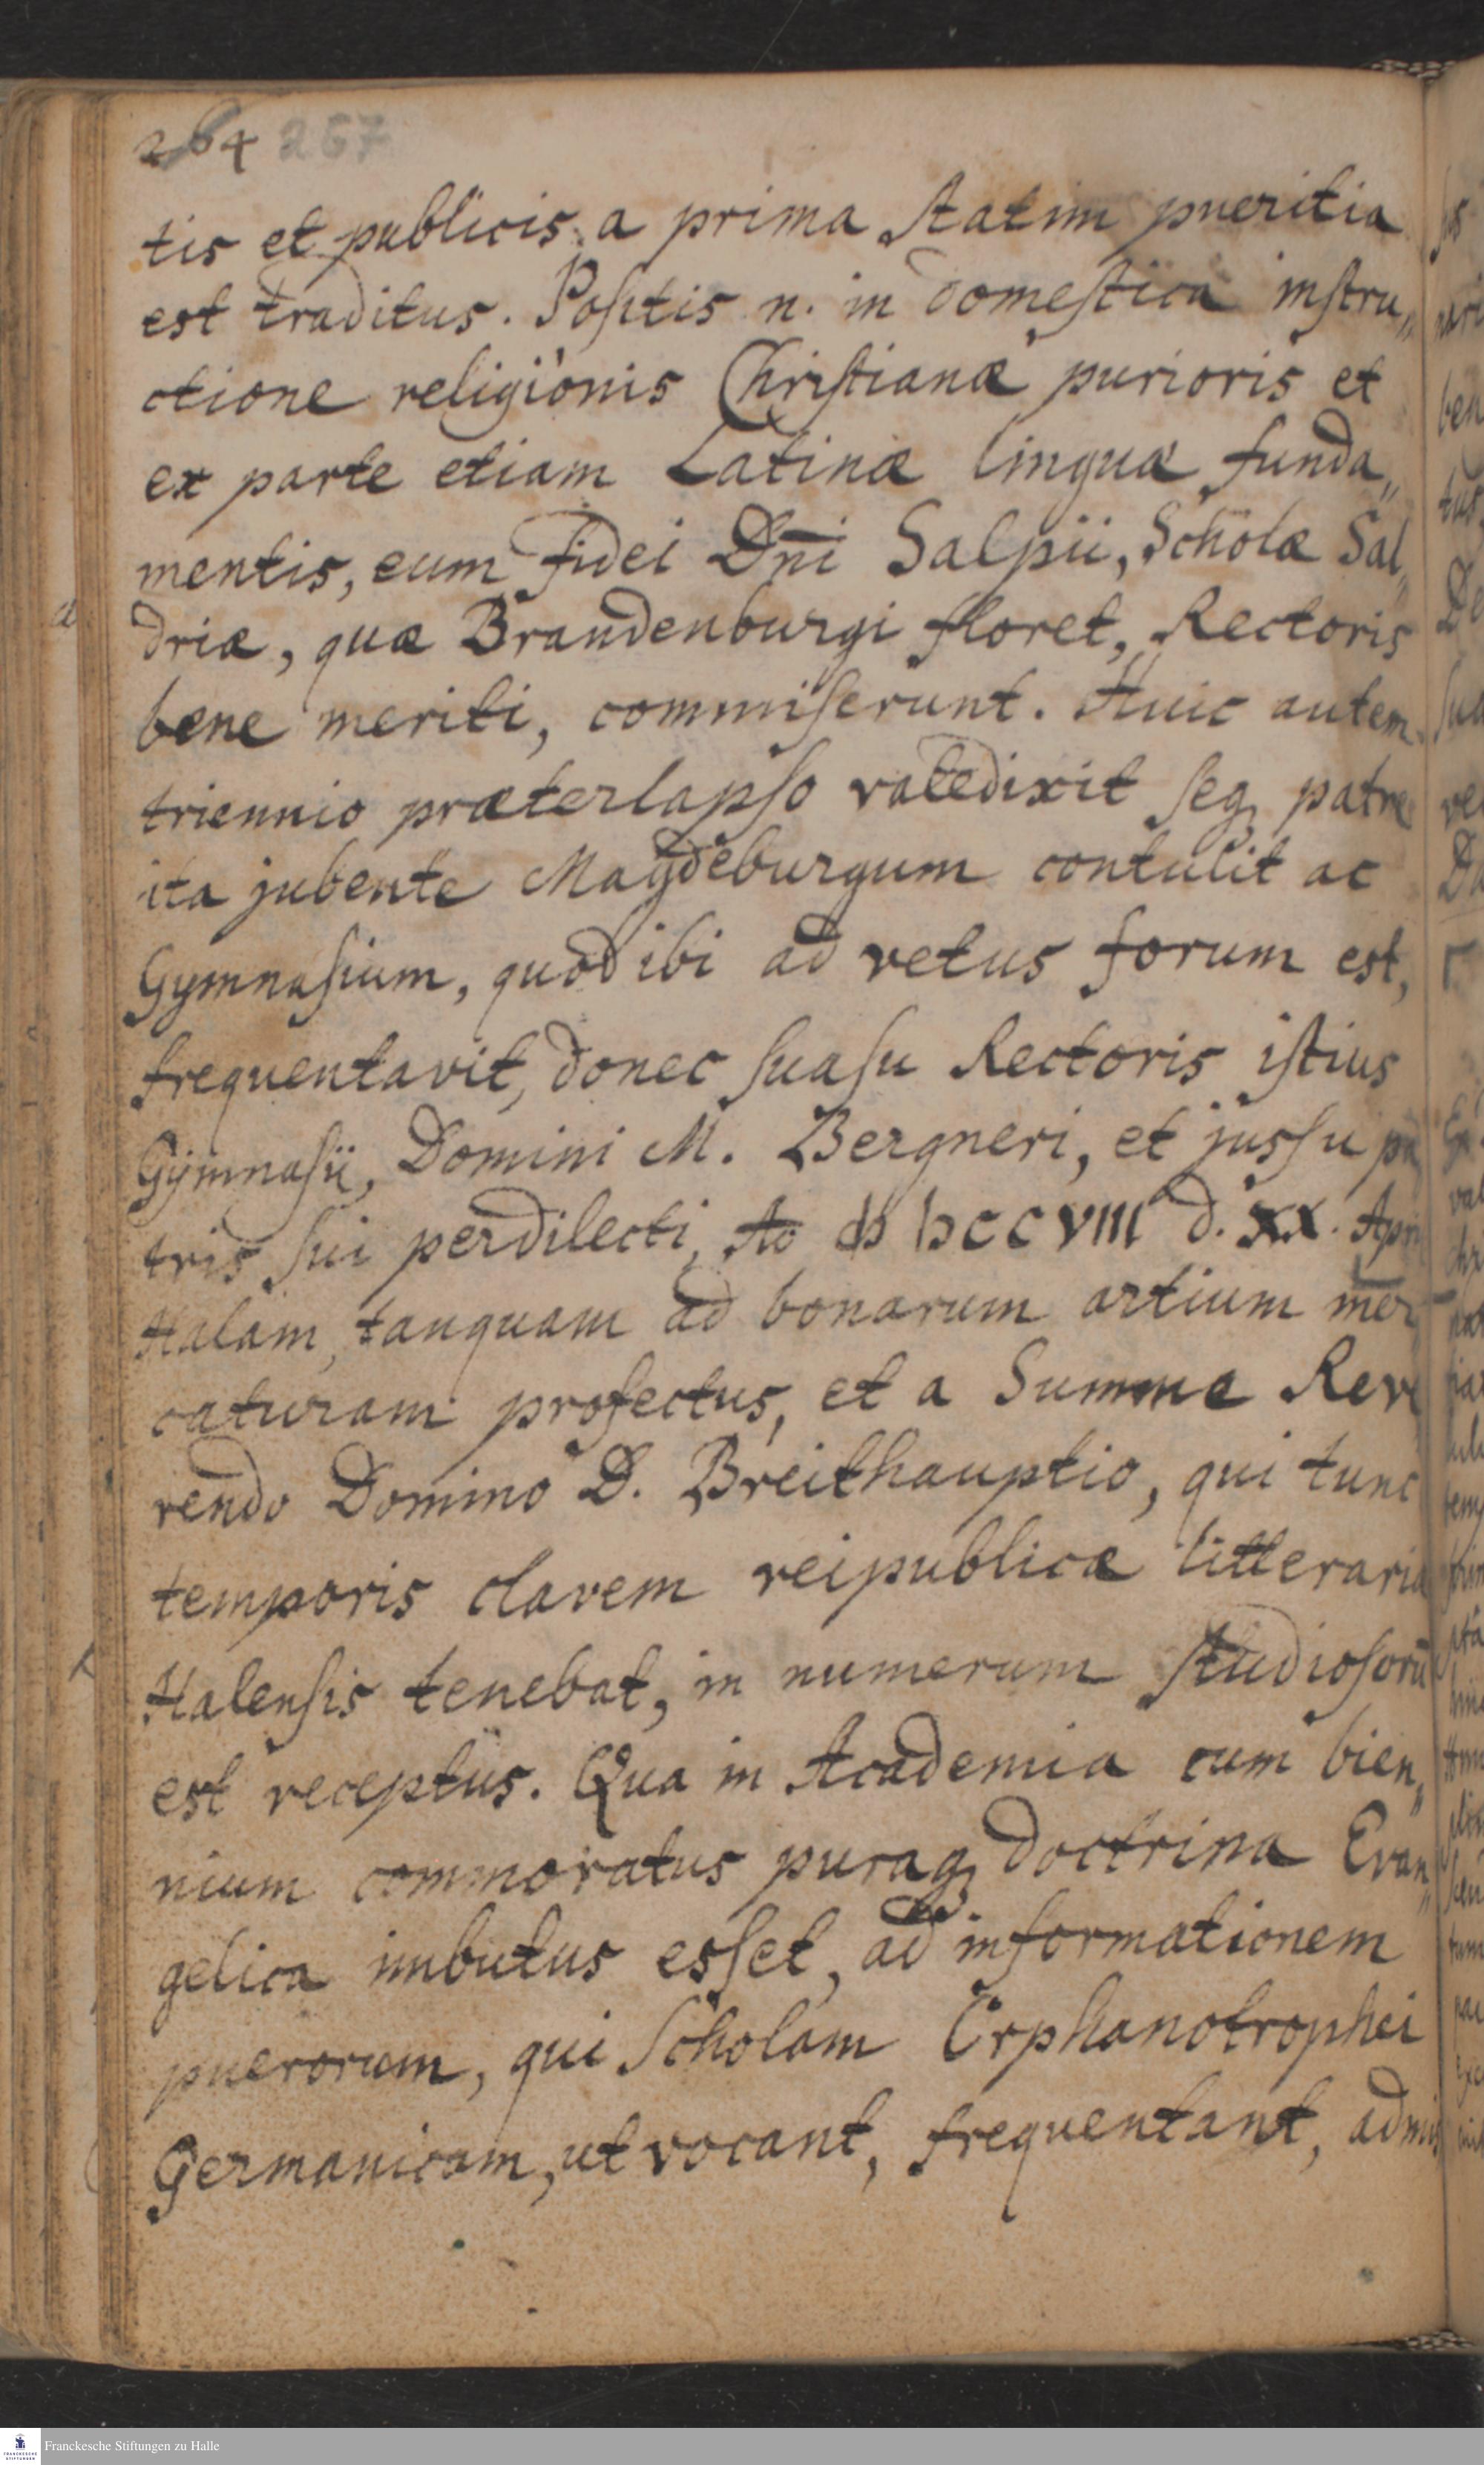 264 267
tis et publicis a prima statim pueritia
est traditus. Positis n. in domestica instru„
ctione religionis Christianæ purioris et
ex parte etiam Latinæ linguæ funda„
mentis, eum fidei Dn̄i Salpii, Scholæ Sal„
driæ, quæ Brandenburgi floret, Rectoris
bene meriti, commiserunt. Huic autem
triennio præterlapso valedixit seq patre
ita jubente Magdeburgum contulit ac
Gymnasium, quod ibi ad vetus forum est,
frequentavit, donec suasu Rectoris istius
Gymnasii, Domini M. Bergneri, et jussu pa
tris sui perdilecti, Ao cIↃ IↃCCVIII d. XX. Apri
Halam, tanquam ad bonarum artium mer
caturam profectus, et a Summe Reve
rendo Domino D. Breithauptio, qui tunc
temporis clavem reipublicæ litteraria
Halensis tenebat, in numerum studiosorū
est receptus. Qua in Academia cum bien„
nium commoratus puraq doctrina Evan„
gelica imbutus esset, ad informationem
puerorum, qui Scholam Orphanotrophei
Germanicam, ut vocant, frequentant, admis
Franckesche Stiftungen zu Halle